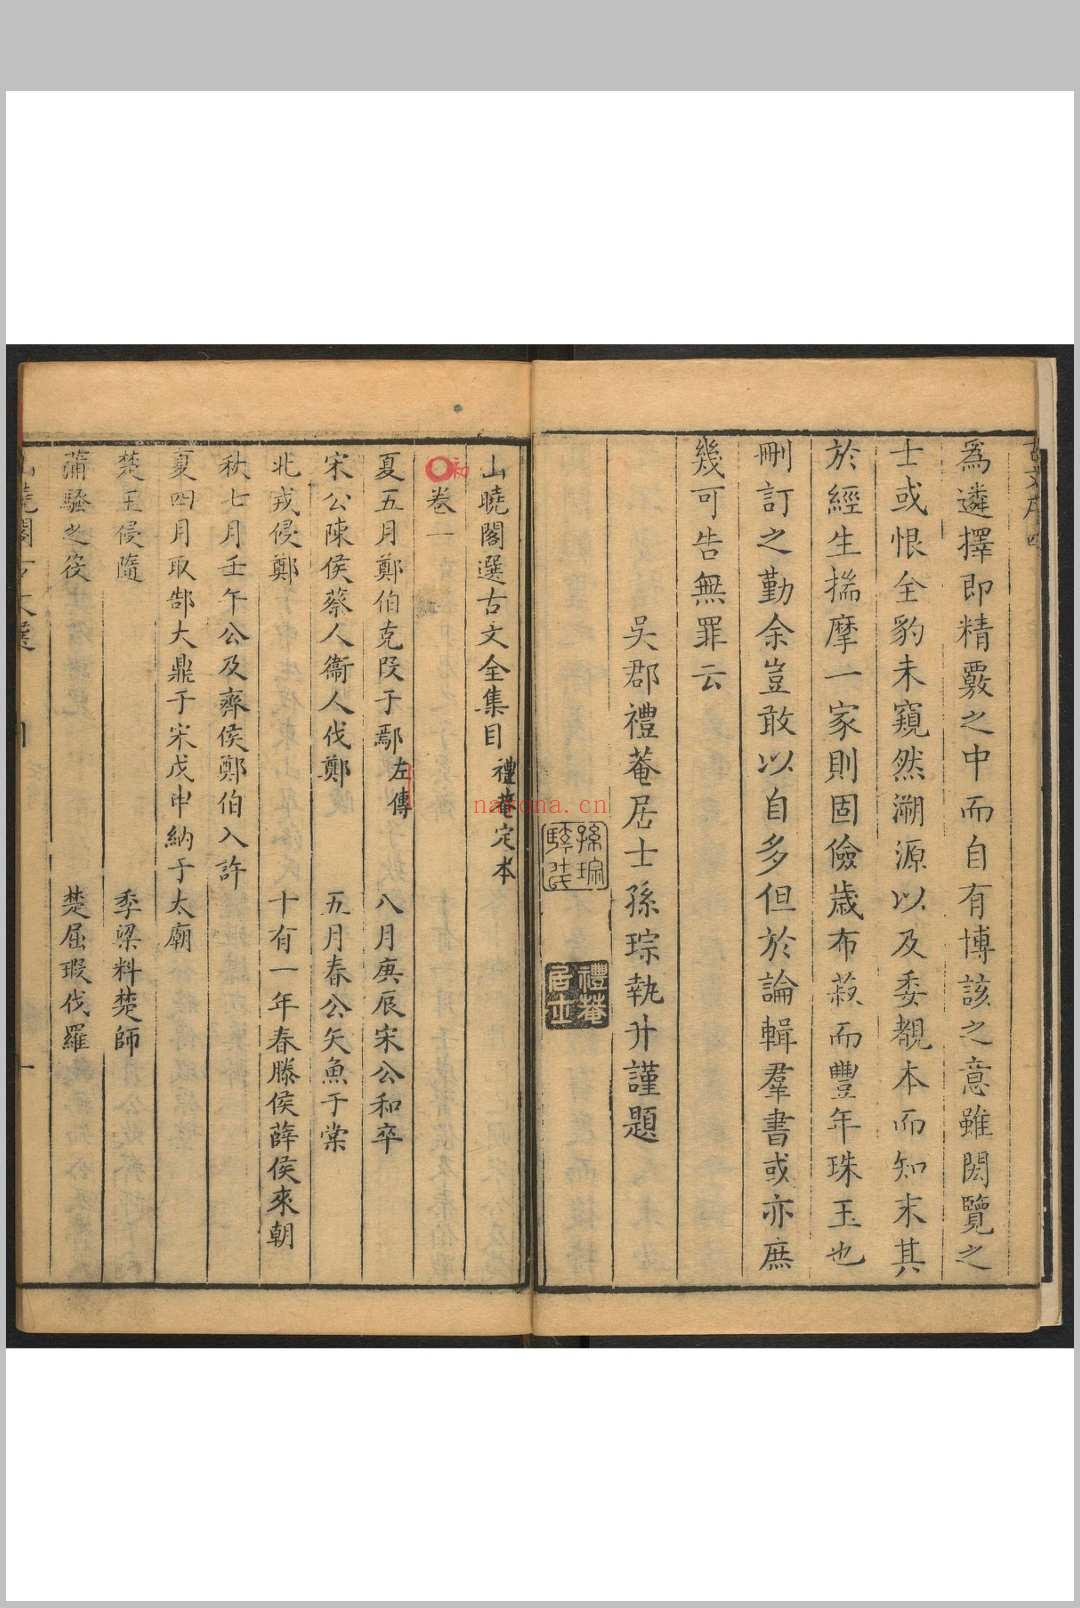 為遴擇即精覈之中而自有博該之意雖閎覽之
士或恨全豹未窺然溯源以及委覩本而知末其
於經生揣摩一家則固儉歲布菽而豐年珠玉也
刪訂之勤余豈敢以自多但於論輯羣書或亦庶
幾可告無罪云
吳郡禮菴居士孫琮執升謹題
孫琮
禮菴居士
nayona.cn
山曉閣選古文全集目 禮菴定本
初
卷一
夏五月鄭伯克段于鄢 左傳 八月庚辰宋公和卒
宋公陳侯蔡人衞人伐鄭 五月春公矢魚于棠
北戎侵鄭 十有一年春滕侯薛侯來朝
秋七月壬午公及齊侯鄭伯入許
夏四月取郜大鼎于宋戊申納于太廟
楚王侵隨 季梁料楚師
蒲騷之役 楚屈瑕伐羅